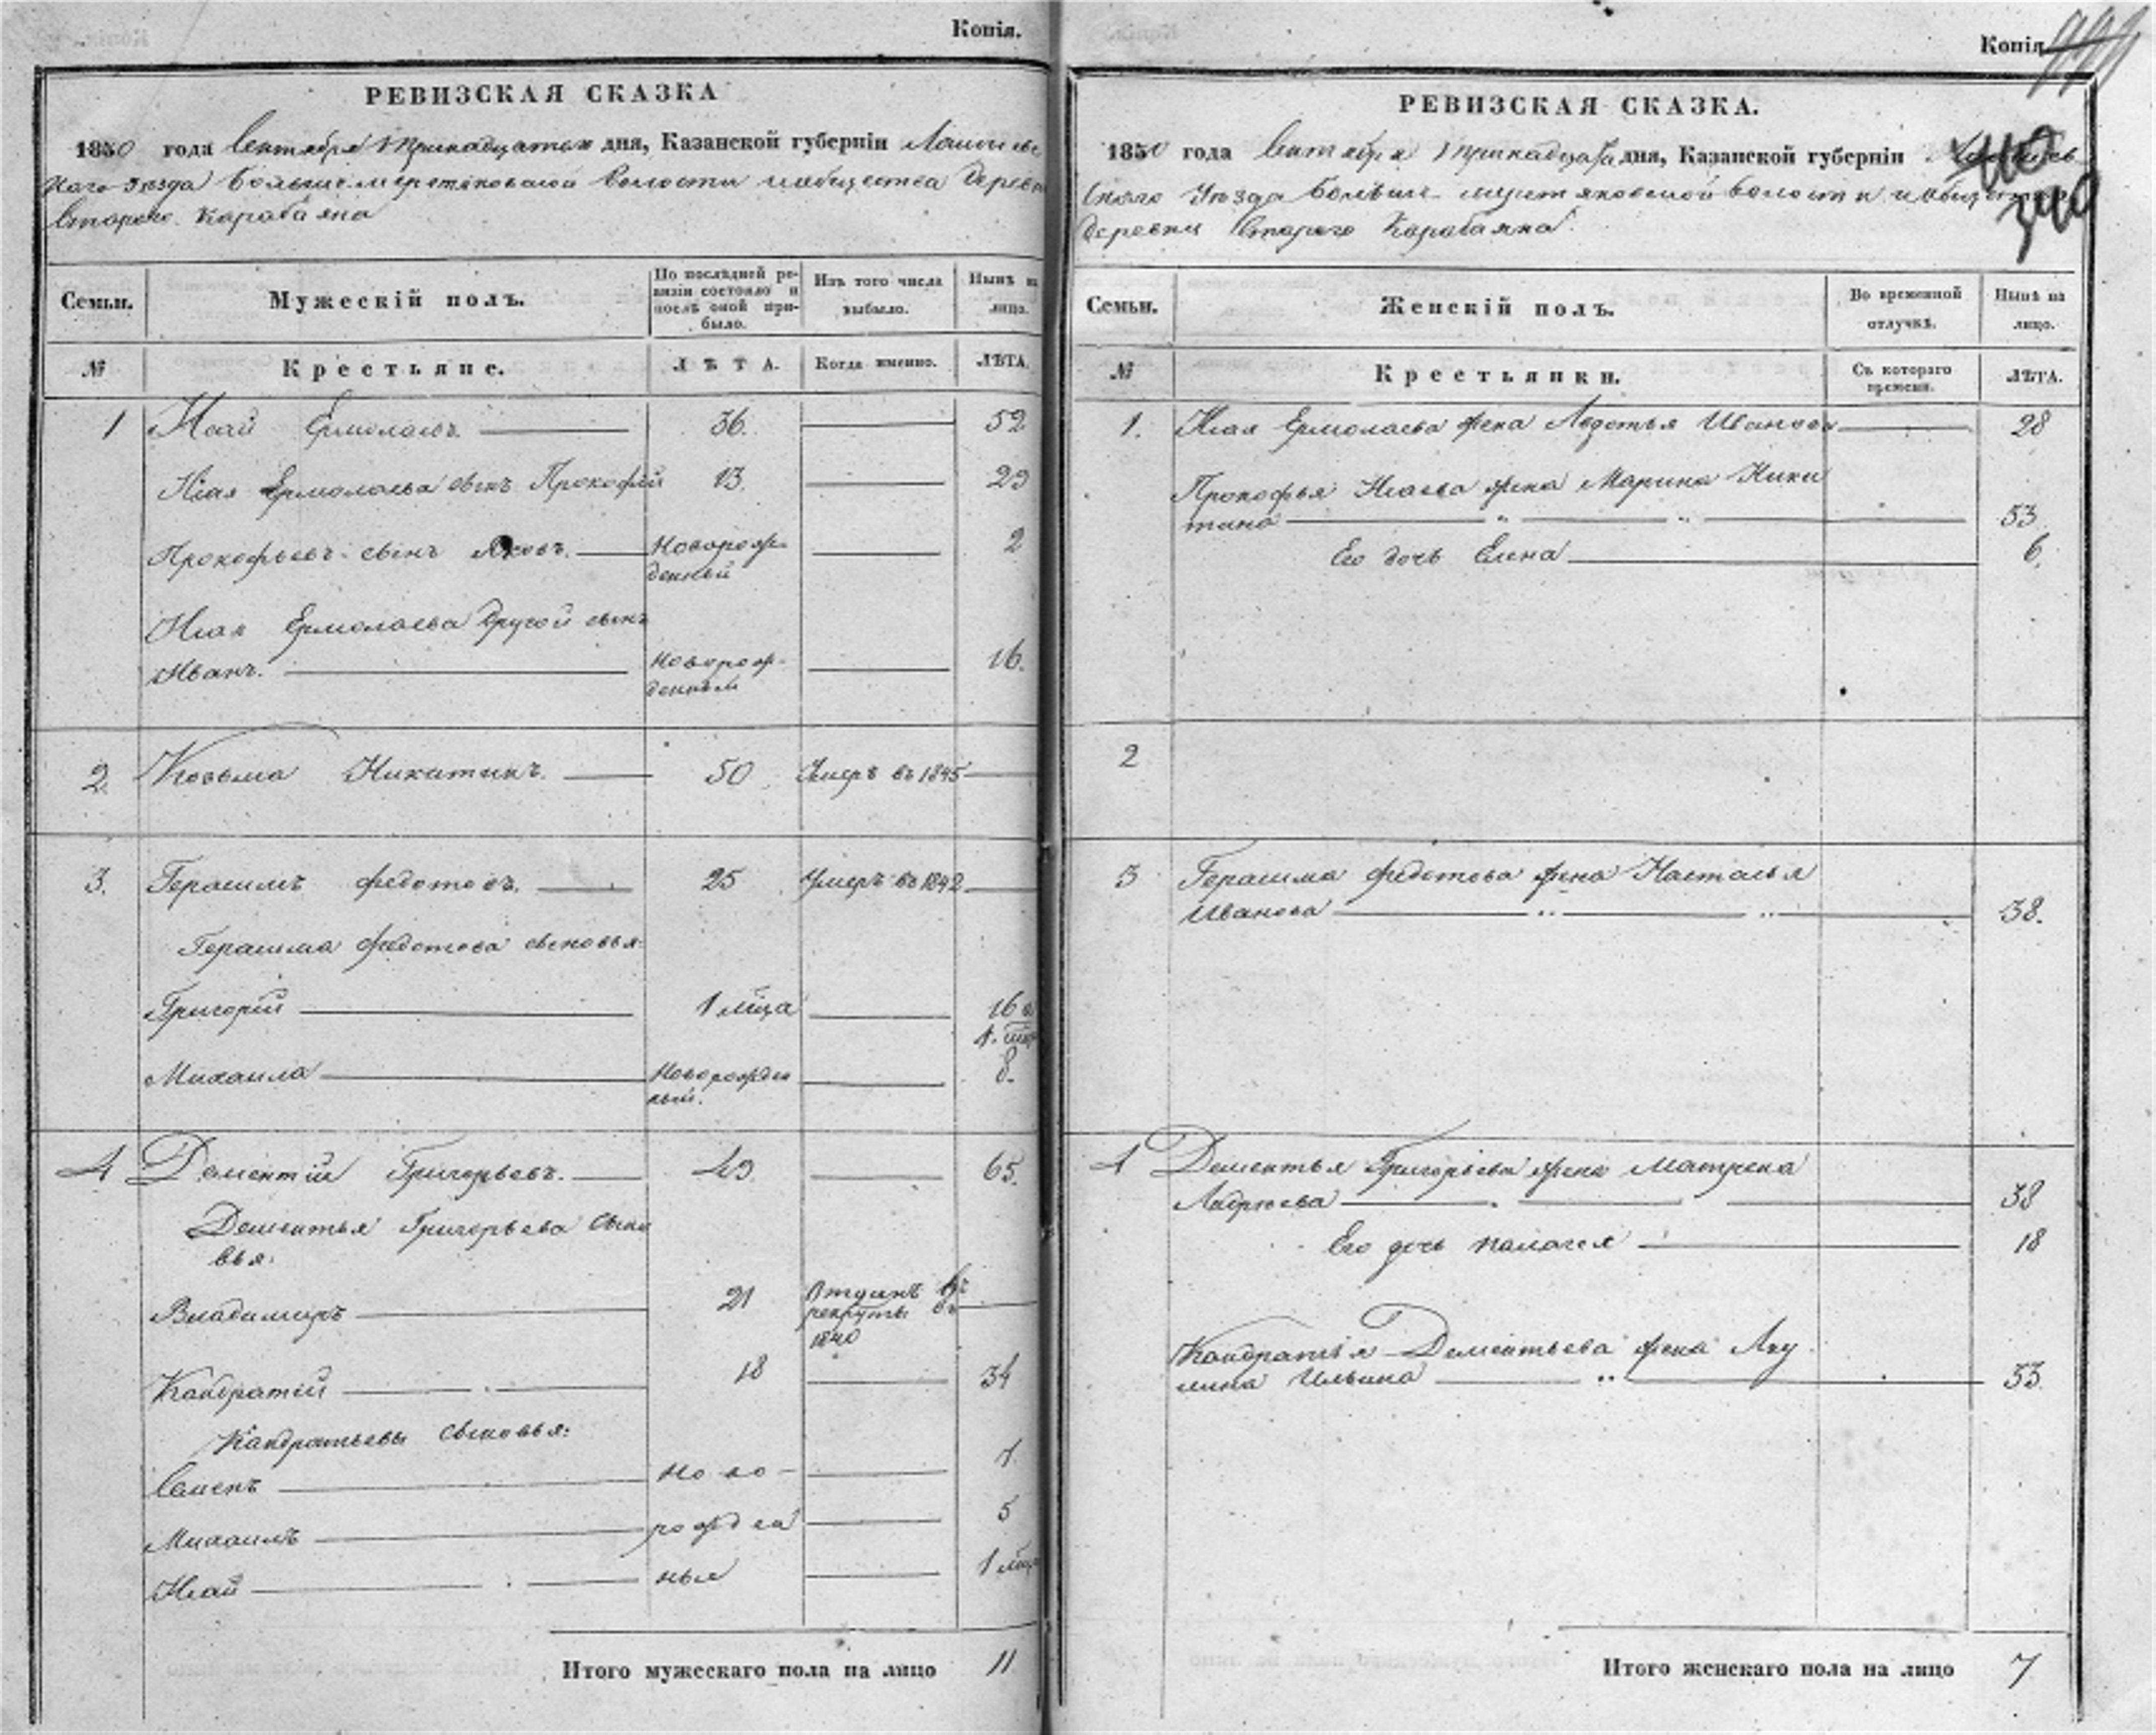 Копія.
РЕВИЗСКАЯ СКАЗКА
1850 года Сентября тринадцатаго дня, Казанской губерніи Лаишев
скаго Уѣзда Больше-меретяковской Волости и общества деревни
Стараго Карабаяна
Семьи.
Мужескій полъ.
По послѣдней ре-
визіи состояло и
послѣ оной при-
было.
Изъ того числа
выбыло.
Нынѣ на
лицо.
№
Крестьяне.
ЛѢТА.
Когда именно.
ЛѢТА.
1 Исай Ермолаевъ 36. 52
Исая Ермолаева сынъ Прокофій 13. 29
Прокофьевъ сынъ Яковъ. Новорож- 2
денный
Исая Ермолаева другой сынъ
Иванъ. новорож- 16.
денный
2. Козьма Никитинъ. 50 Умеръ въ 1845
3. Герасимъ Федотовъ. 25 Умеръ въ 1842
Герасима Федотова сыновья:
Григорій 1 мѣца 16
Михаила Новорожден 8.
ный.
4 Дементій Григорьевъ. 49 65.
Дементья Григорьева сыно
вья:
Владимиръ 21 Отданъ въ
рекруты въ
1840
Кондратій 18 34
Кондратьевы сыновья:
Семенъ ново- 7
Михаилъ рожден 5
Исай ные 1 мѣц
Итого мужескаго пола на лицо 11
Копія
РЕВИЗСКАЯ СКАЗКА.
1850 года Сентября тринадцатаго дня, Казанской губерніи Лаишев
скаго Уѣзда Больше-меретяковской Волости и общества
деревни Стараго Карабаяна.
Семьи.
Женскій полъ.
Во временной
отлучкѣ.
Нынѣ на
лицо.
№
Крестьянки.
Съ котораго
времени.
ЛѢТА.
1. Исая Ермолаева жена Авдотья Иванова 28
Прокофья Исаева жена Марина Ники
тина 33
Его дочь Елена 6.
2
3 Герасима Федотова жена Настасья
Иванова 38.
4 Дементья Григорьева жена Матрена
Андреева 38
Его дочь Палагея 18
Кондратія Дементьева жена Аку
лина Ильина 33.
Итого женскаго пола на лицо 7